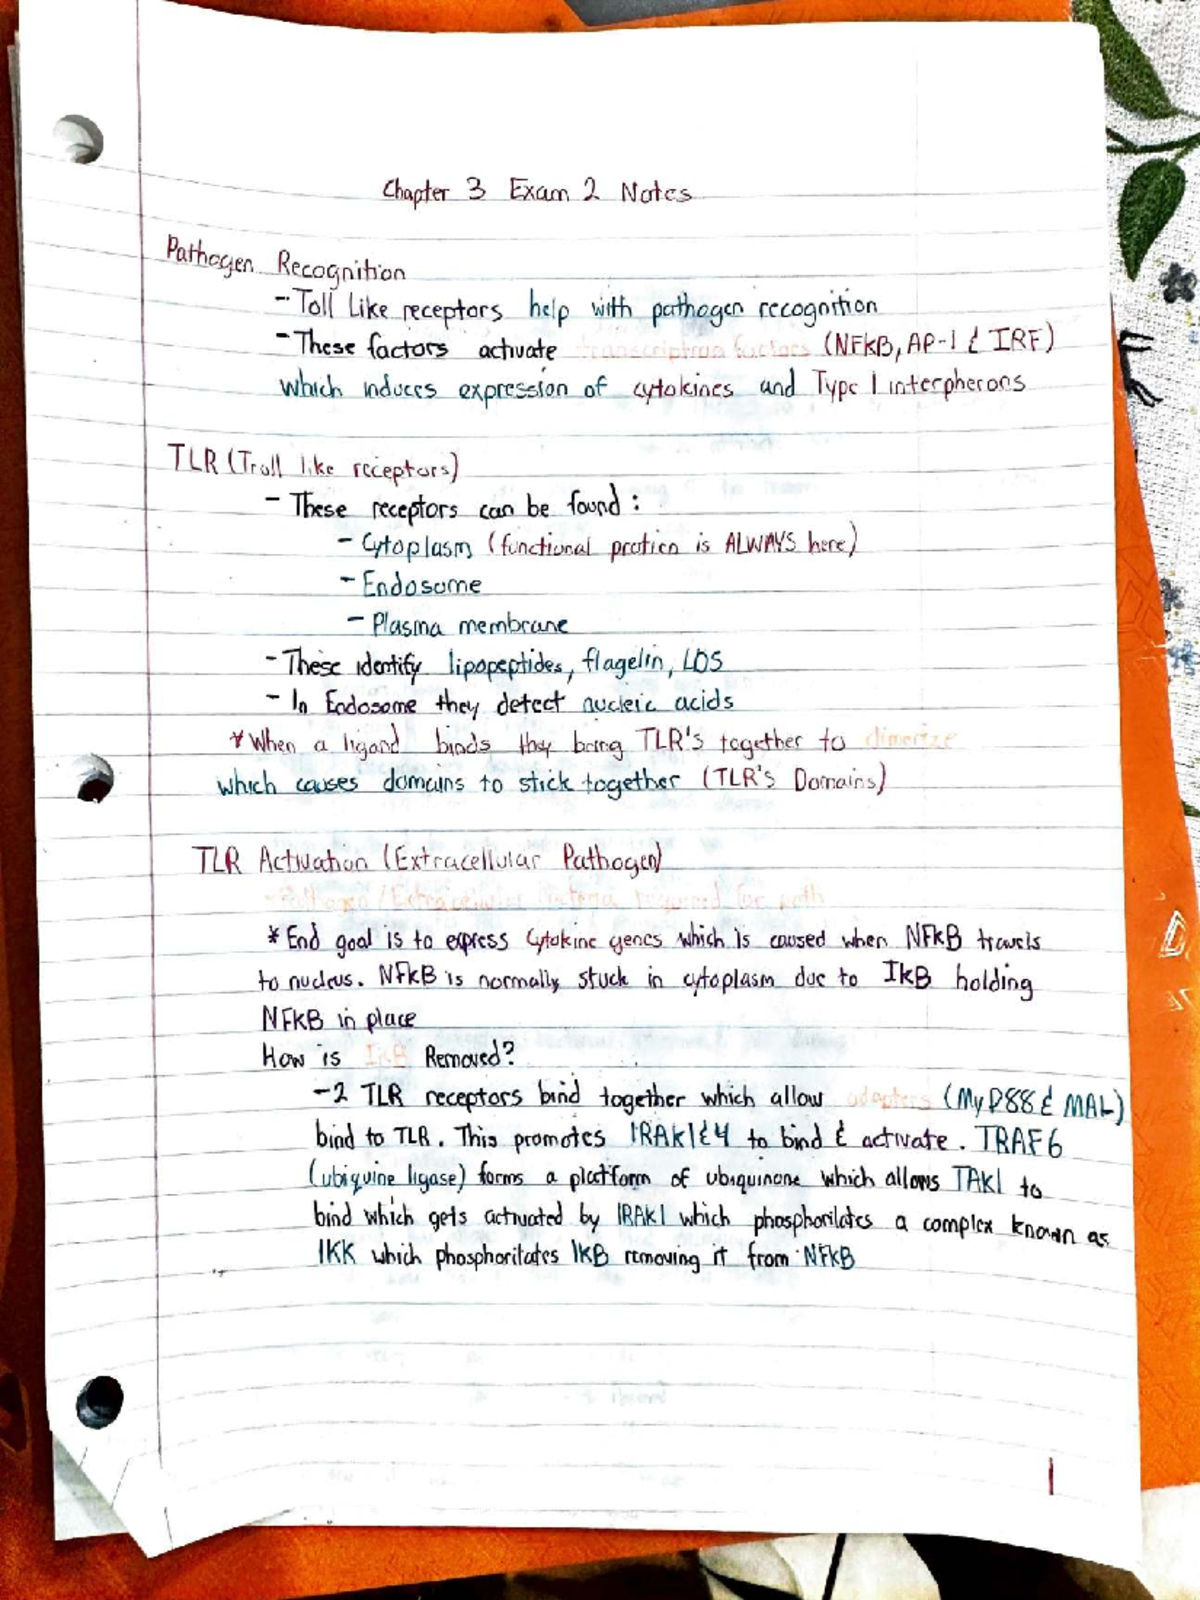 Chapter 3 Exam 2 Notes
Pathogen Recognition
- Toll Like receptors help with pathogen recognition
- These factors activate transcription factors (NFKB, AP-1 & IRF)
which induces expression of cytokines and Type 1 interpherons
TLR (Troll like receptors)
- These receptors can be found:
- Cytoplasm (functional protien is ALWAYS here)
- Endosome
- Plasma membrane
- These identify lipopeptides, flagelin, LOS
- In Endosome they detect nucleic acids
* When a ligand binds they bring TLR's together to dimerize
which causes domains to stick together (TLR's Domains)
TLR Activation (Extracellular Pathogen)
- Pathogen / Extracellular bacteria required for path
* End goal is to express Cytokine genes which is caused when NFKB travels
to nucleus. NFKB is normally stuck in cytoplasm due to IKB holding
NFKB in place
How is IKB Removed?
- 2 TLR receptors bind together which allow adapters (MyD88 & MAL)
bind to TLR. This promotes IRAK1&4 to bind & activate. TRAF6
(ubiquine ligase) forms a platform of ubiquinone which allows TAK1 to
bind which gets activated by IRAK1 which phosphorilates a complex known as
IKK which phosphorilates IKB removing it from NFKB
1